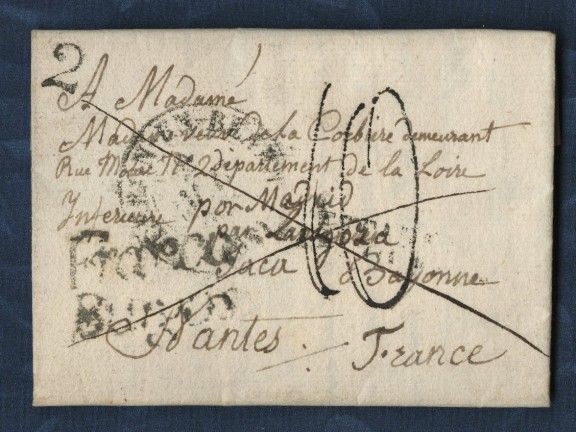 2
A Madame
Madame veuve de la Corbiere demeurant
Rue N° 2 departement de la Loire
Inferieure por Madrid
par Zaragoza
Jaca & Bayonne
Franco
Nantes France
10